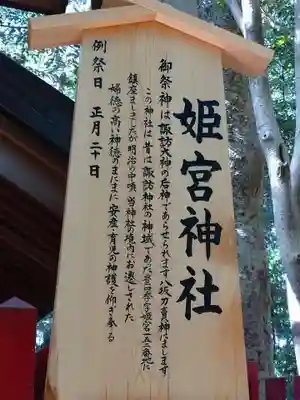 姫宮神社
御祭神は諏訪大神の后神であらせられます八坂刀賣神にまします
この神社は昔は諏訪神社の神域であった登呂秀字姫宮一五二番地に
鎮座ましましたが明治の中頃 当神社の境内にお遷しされた
婦徳の高い神徳のまにまに 安産・育児の神護を仰ぎ奉る
例祭日 正月二十日